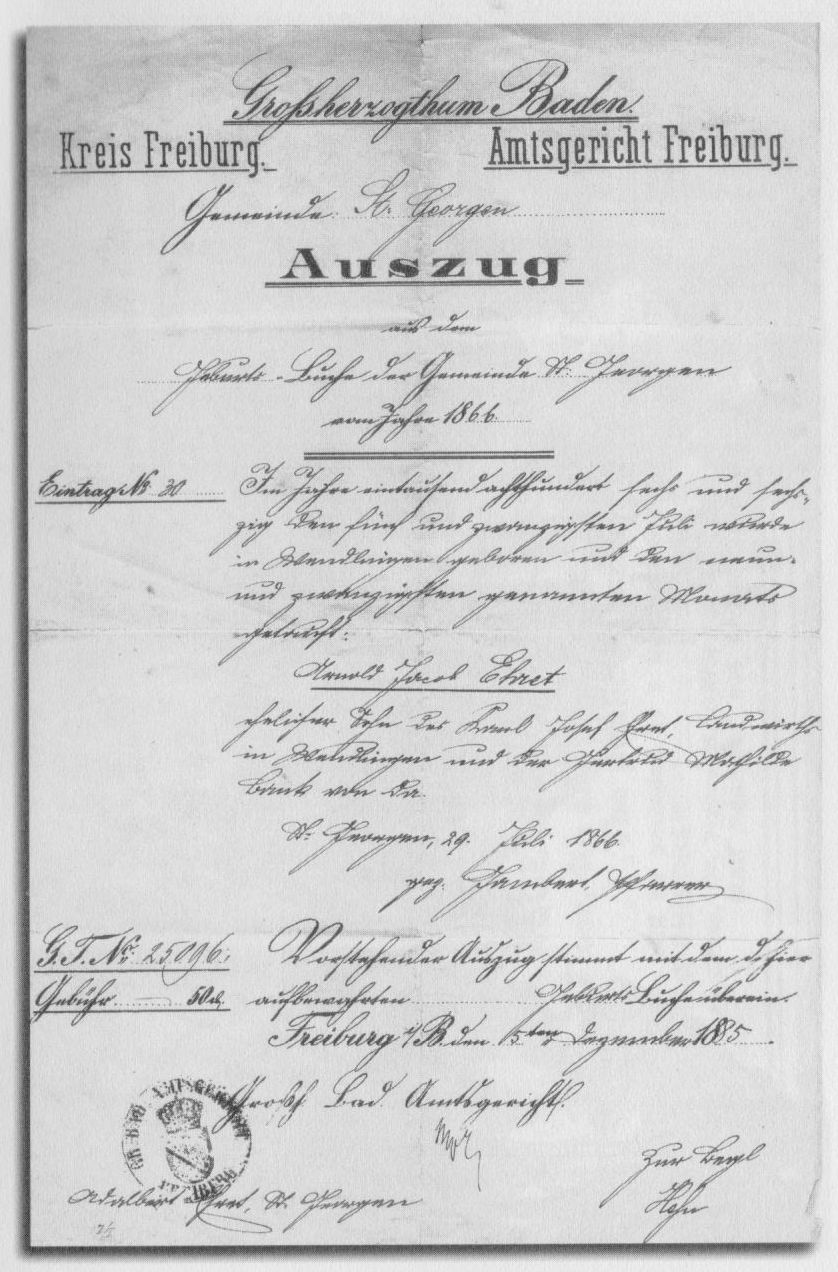 Großherzogthum Baden.
Kreis Freiburg.
Amtsgericht Freiburg.
Gemeinde St. Georgen
Auszug
aus dem
Geburts-Buche der Gemeinde St. Georgen
vom Jahre 1866.
Eintrag No. 30
Im Jahre eintausend achthundert sechs und sech-
zig den fünf und zwanzigsten Juli wurde
in Wendlingen geboren und den neun-
und zwanzigsten genannten Monats
getauft:
Arnold Jacob Ehret
ehelicher Sohn des Josef Eret, Landwirths
in Wendlingen und der Gertrud Mathilde
von da.
St. Georgen, 29. Juli 1866.
gez. Pfarrer
G.T. No. 25,096.
Gebühr 50 d.
Vorstehender Auszug stimmt mit dem, dahier
aufbewahrten Geburts Buche überein.
Freiburg i/B. den 5ten Dezember 1885.
Großh. Bad. Amtsgericht.
Zur Begl
GR. BAD. AMTSGERICHT
FREIBURG
Adalbert Eret, St. Georgen